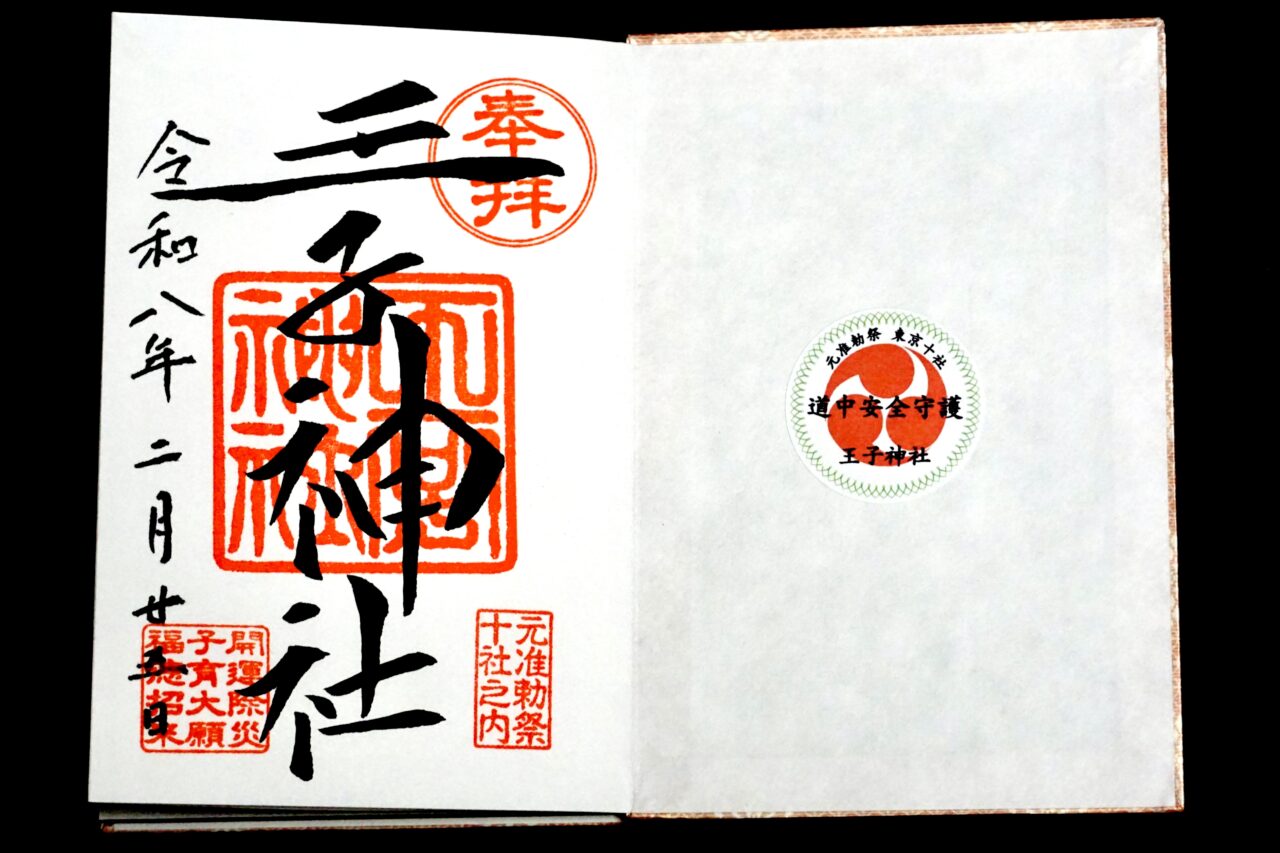 奉拝
元准勅祭
十社之内
王子神社
開運除災
子育大願
福徳招来
令和八年二月廿五日
元准勅祭 東京十社
道中安全守護
王子神社